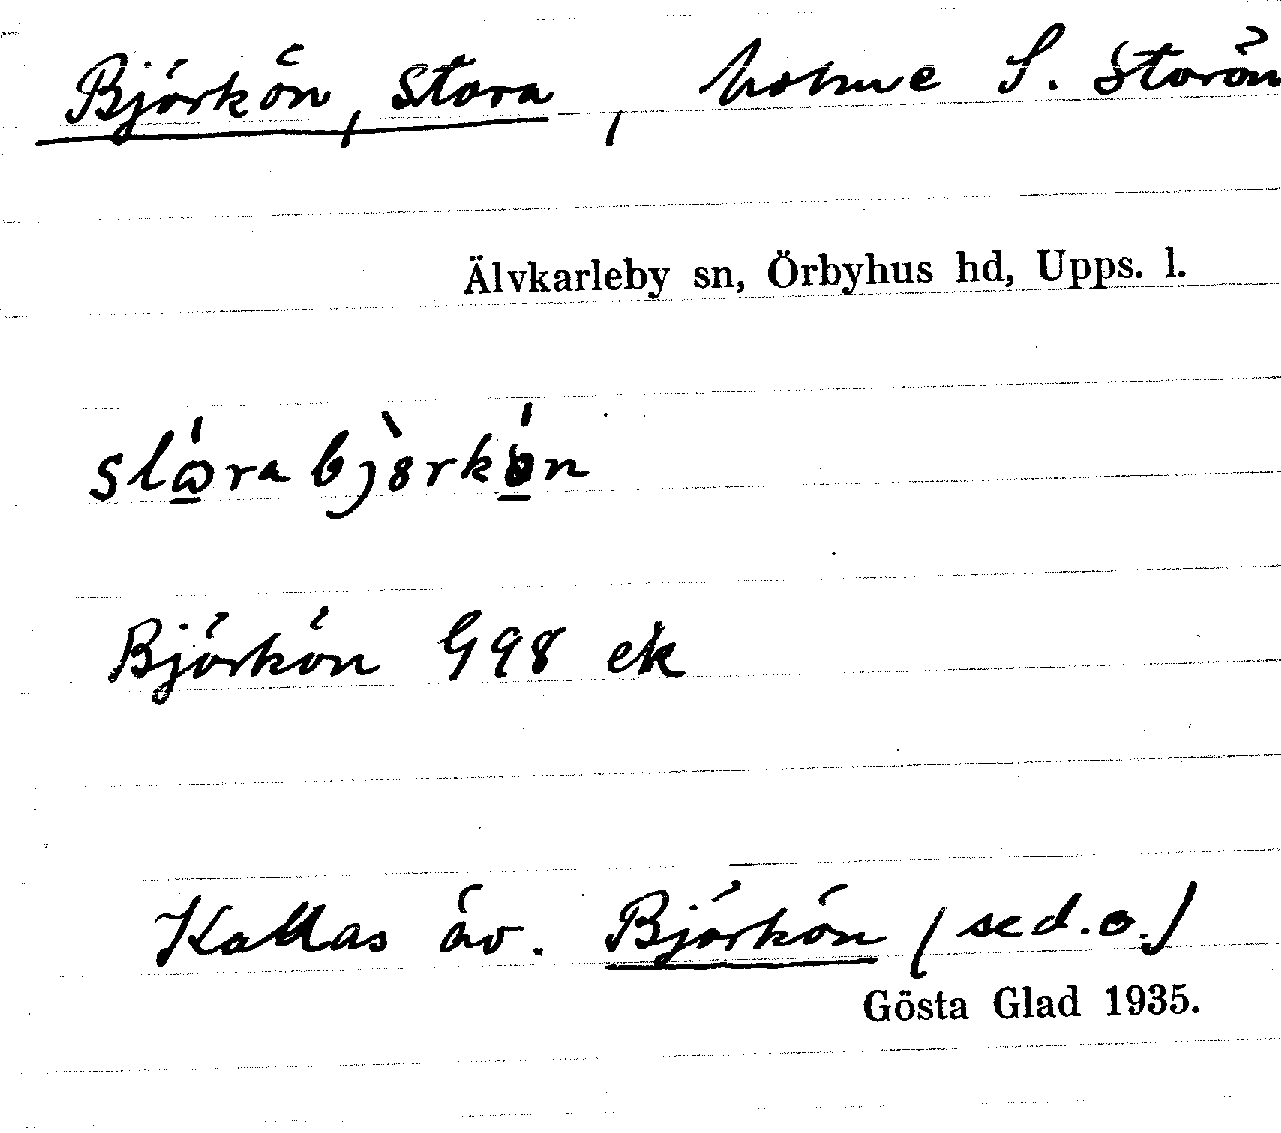 Björkön, Stora, holme S. Storön
Älvkarleby sn, Örbyhus hd, Upps. l.
Björkön G98 ek
Kallas äv. Björkön (se d. o.)
Gösta Glad 1935.